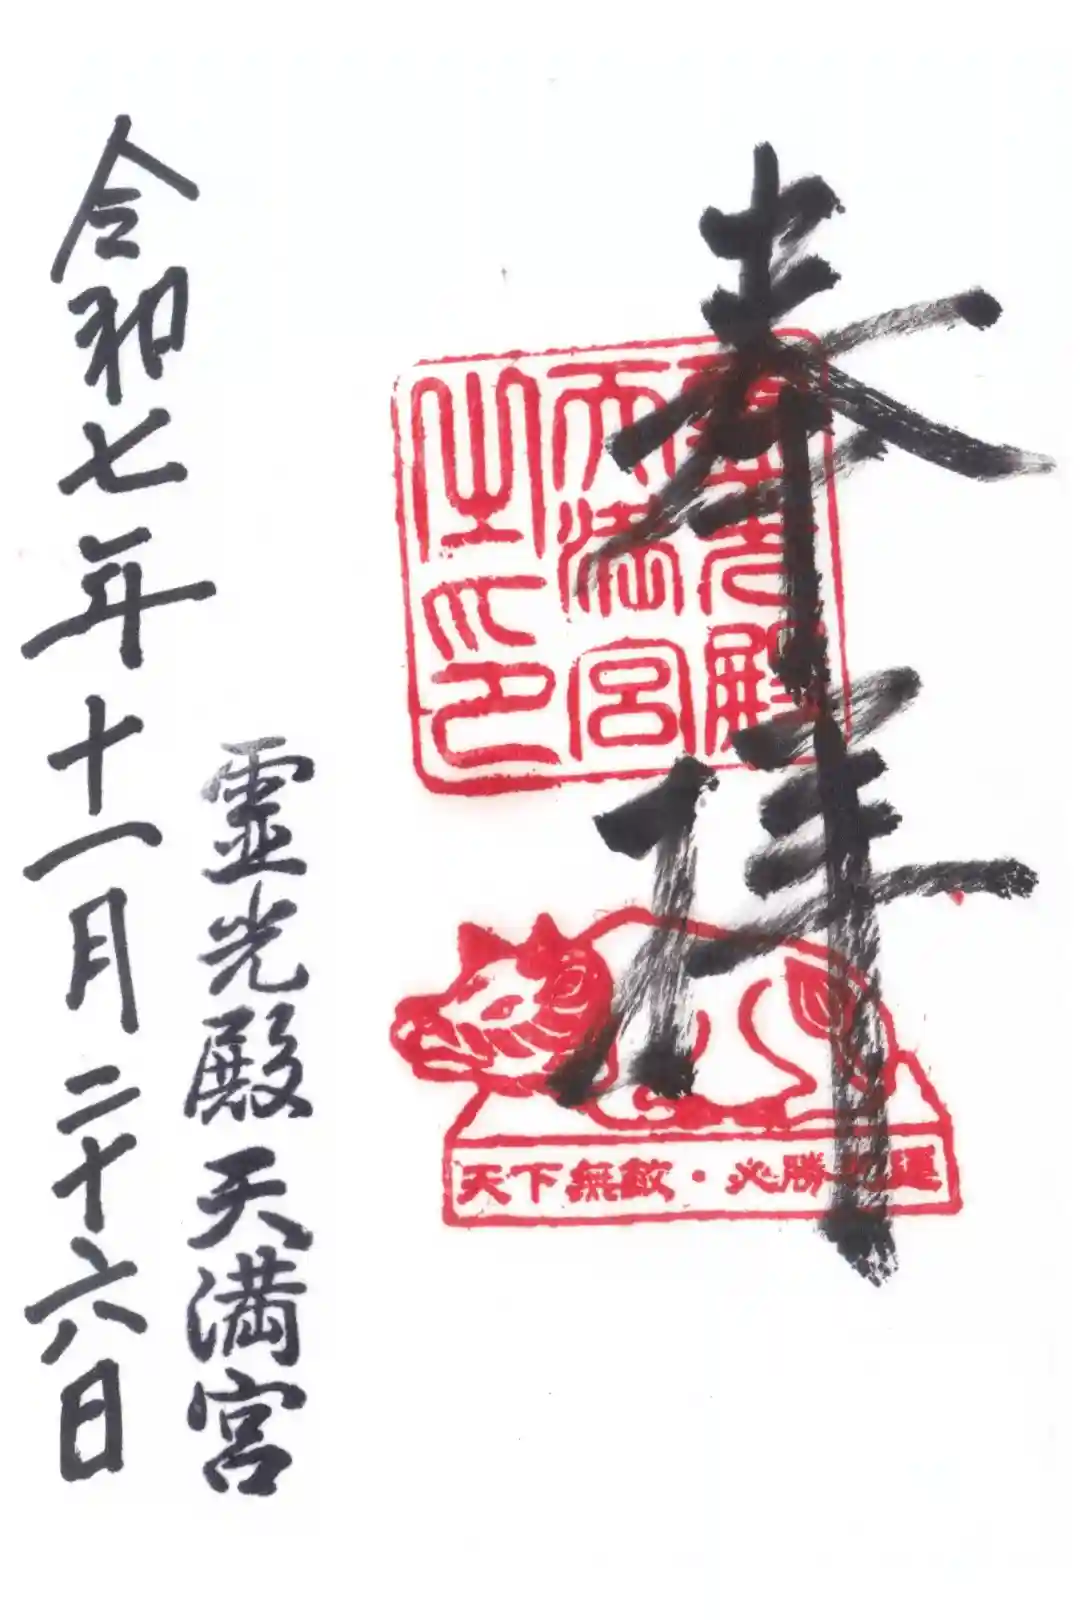 奉拝
霊光殿
天満宮
之印
天下無敵・必勝祈運
霊光殿天満宮
令和七年十一月二十六日